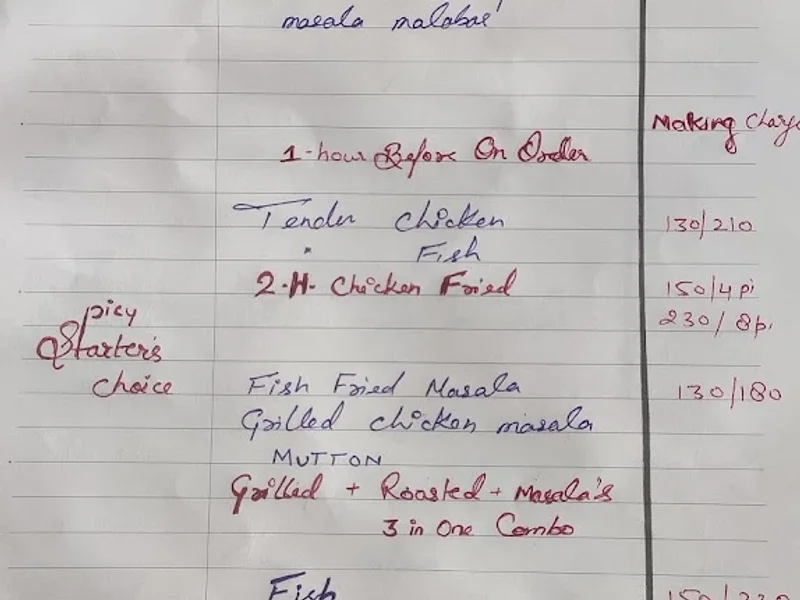 masala malabar
Making Charge
1-hour Before On Order
Tender chicken 130/210
Fish
2.H. Chicken Fried 150/4 pi
230/8p.
picy
Starter's
choice
Fish Fried Masala 130/180
Grilled chicken masala
MUTTON
Grilled + Roasted + Masala's
3 in One Combo
Fish